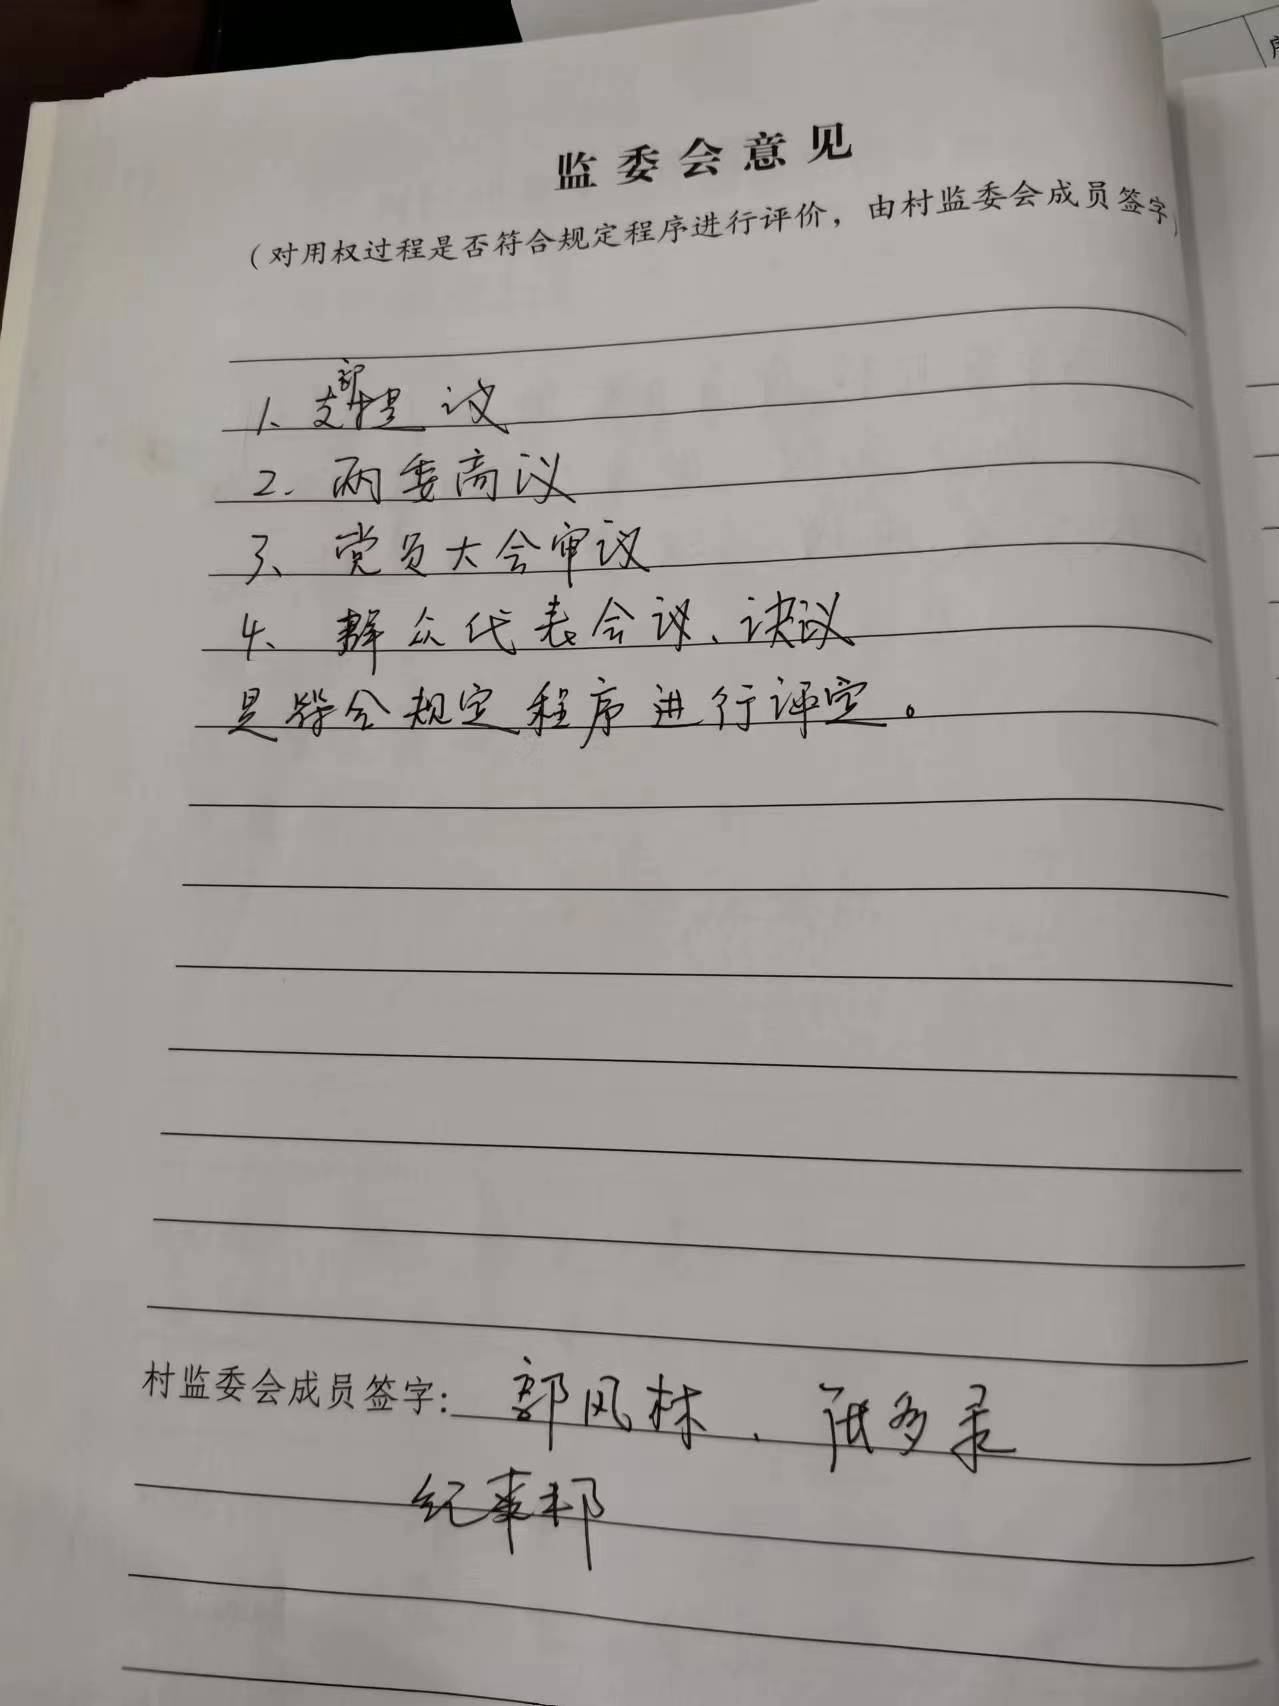 监委会意见
（对用权过程是否符合规定程序进行评价，由村监委会成员签字）
1、支部提议
2．两委商议
3、党员大会审议
4、群众代表会议、决议
是符合规定程序进行评定。
村监委会成员签字：郭风林、多录
纪来邦